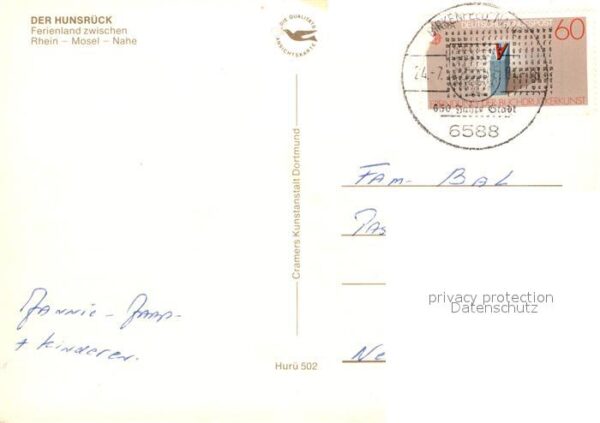 DER HUNSRÜCK
Ferienland zwischen
Rhein – Mosel – Nahe
DIE QUALITÄTS
ANSICHTSKARTE
DEUTSCHE BUNDESPOST
60
24.-7.
ERFINDUNG DER BUCHDRUCKERKUNST
650 Jahre Stadt
6588
Cramers Kunstanstalt Dortmund
Fam- Bal
Pas
privacy protection
Datenschutz
Ne
Jannie - Jaap-
+ Kinderen.
Hurü 502